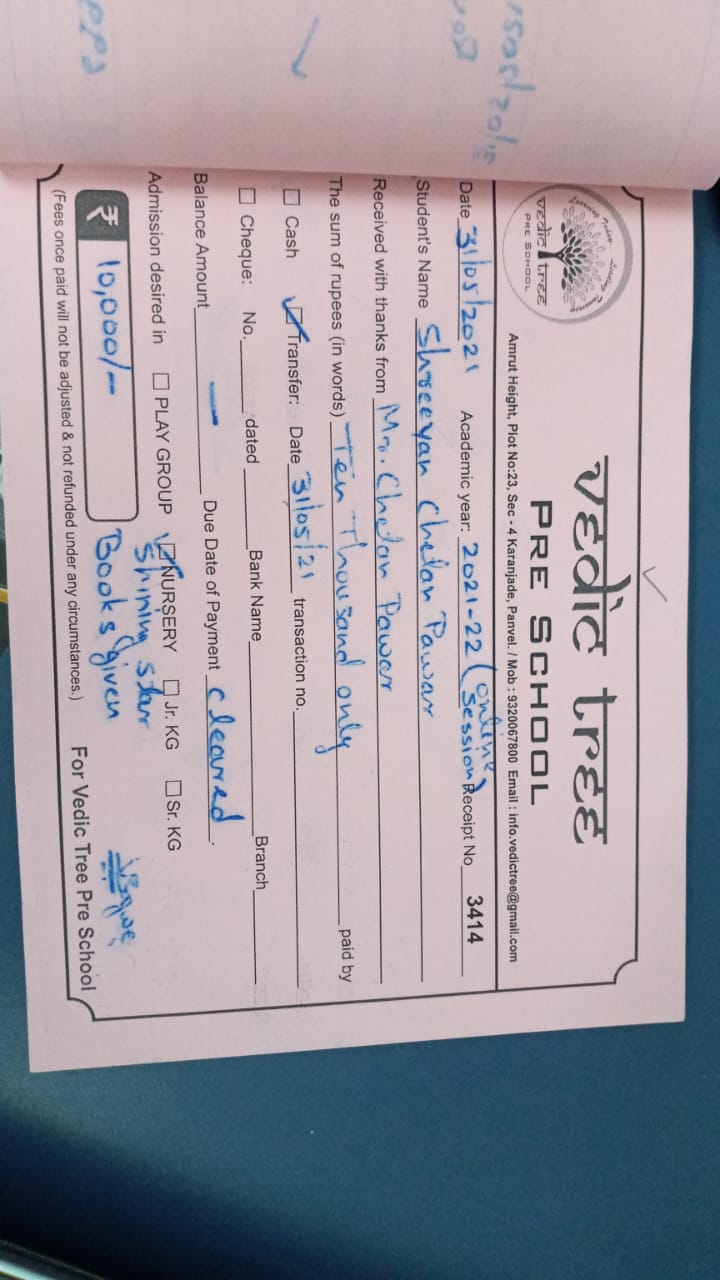 vedic tree
PRE SCHOOL
vedic tree
PRE SCHOOL
Amrut Height, Plot No:23, Sec - 4 Karanjade, Panvel. / Mob : 9320067800 Email : info.vedictree@gmail.com
Date 31/05/2021 Academic year: 2021-22 (online session) Receipt No 3414
Student's Name Shreeyan Chetan Pawar
Received with thanks from Mr. Chetan Pawar
The sum of rupees (in words) Ten Thousand only paid by
Cash Transfer: Date 31/05/21 transaction no.
Cheque: No. dated Bank Name Branch
Balance Amount — Due Date of Payment cleared.
Admission desired in PLAY GROUP NURSERY Jr. KG Sr. KG
Shining star
₹ 10,000/- Books given
For Vedic Tree Pre School
(Fees once paid will not be adjusted & not refunded under any circumstances.)